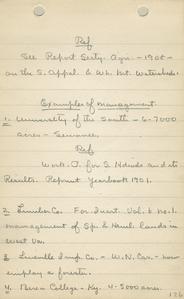 Ref
See Report Secty. Agr. - 1908 -
on the S. Appal. & Wh. Mt. Watersheds.
Examples of management.
1. University of the South - 6-7000
acres - Sewanee.
Ref
Work. O. for S Ndwds and its
Results. Reprint Yearbook 1901.
2. Lumber Co. For Quart. Vol. 6 no. 1.
management of Sp. & Hard. lands in
West Va.
3. Linville Imp. Co. - W. N. Car. - now
employ a forester.
4. Berea College - Ky. 4-5000 acres.